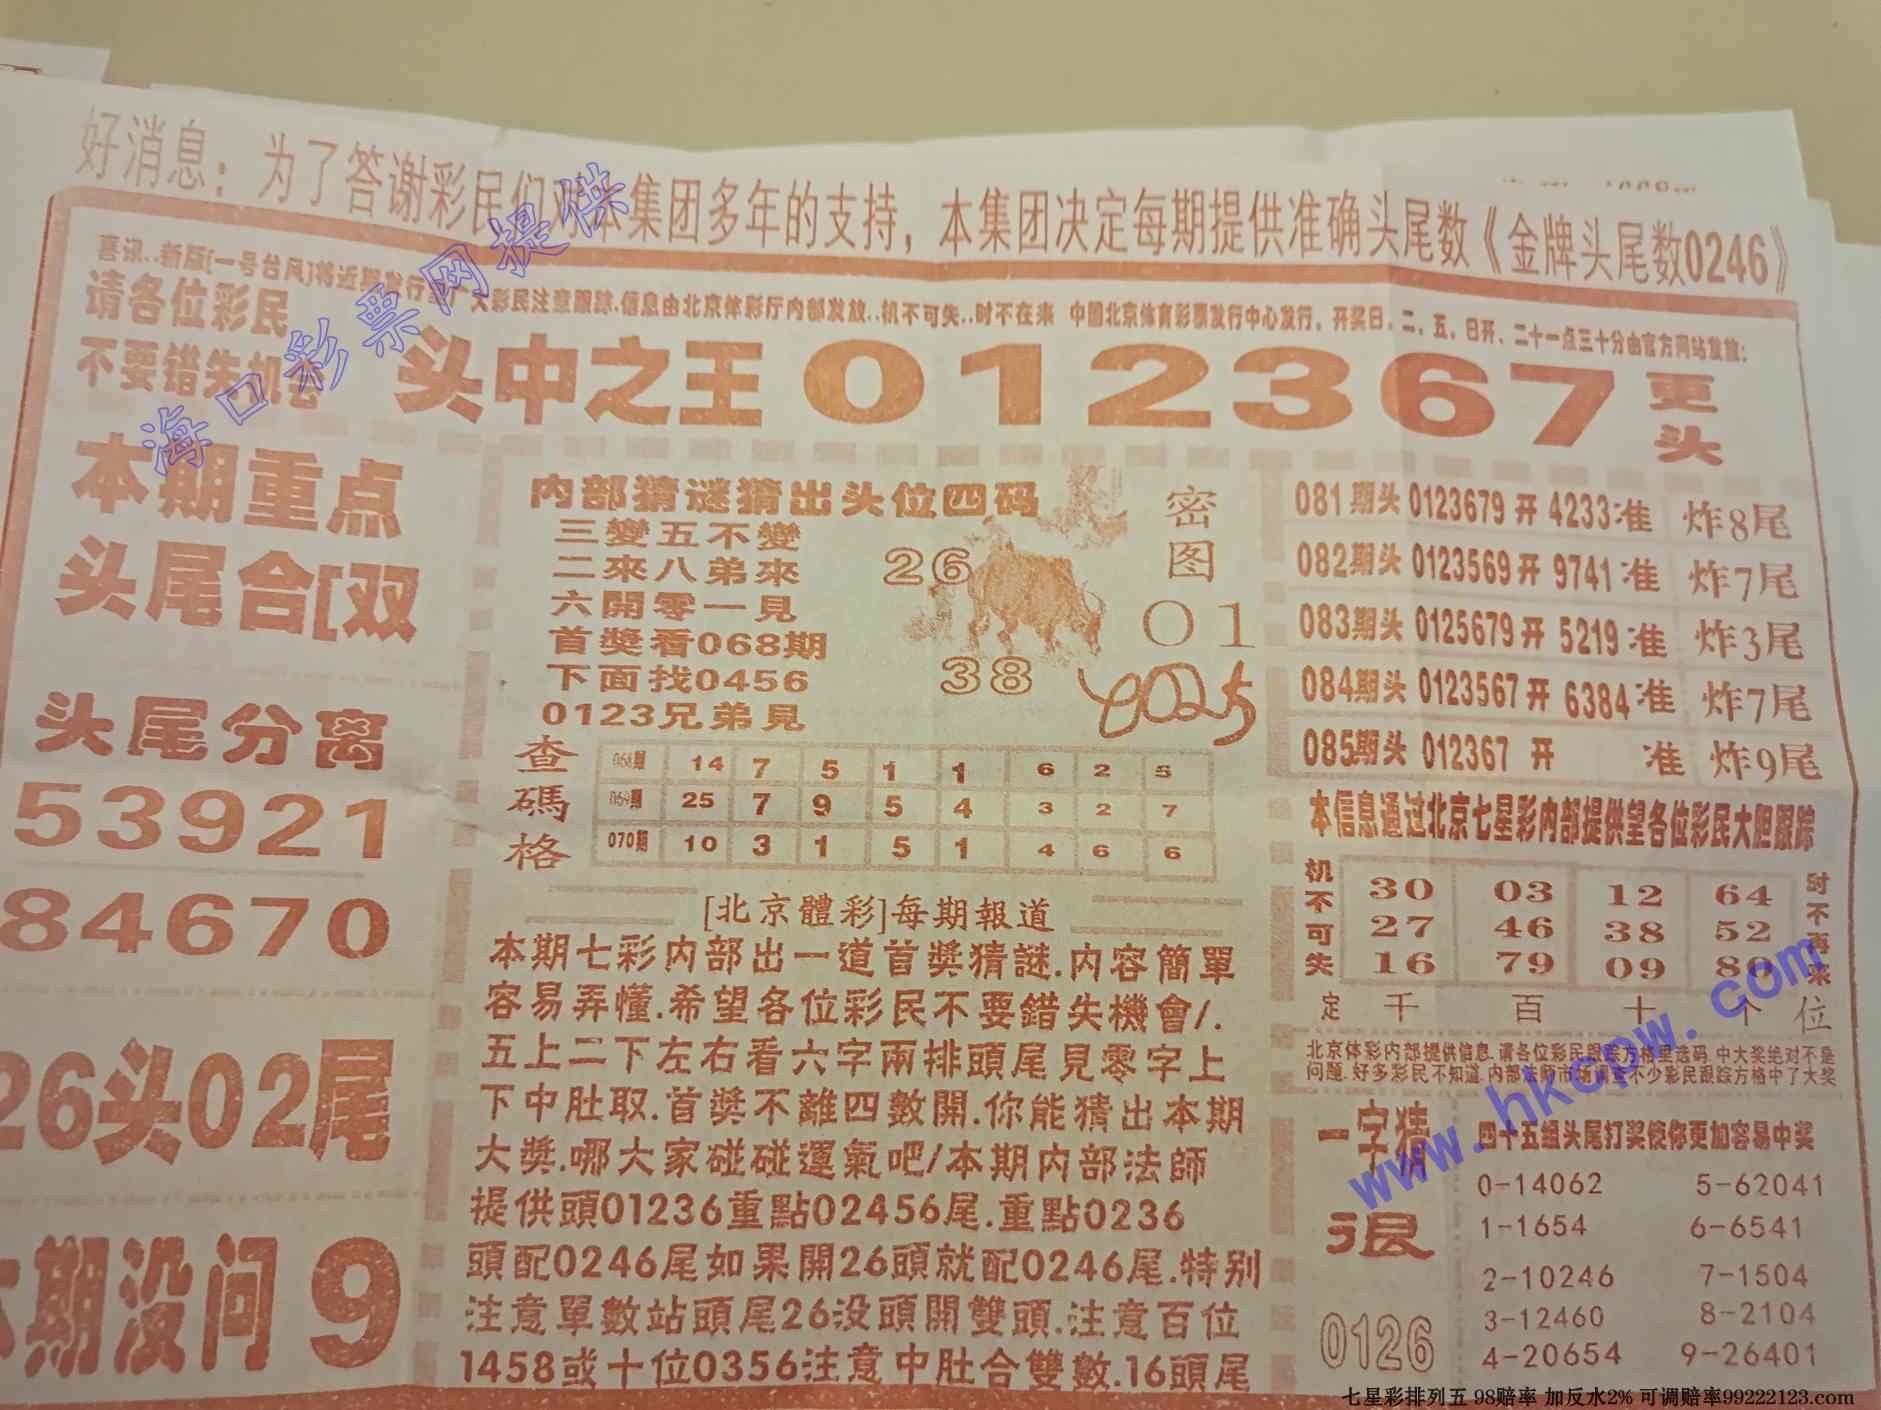 好消息：为了答谢彩民们对本集团多年的支持，本集团决定每期提供准确头尾数《金牌头尾数0246》
喜讯..新版[一号台风]将近期发行
大彩民注意跟踪.信息由北京体彩厅内部发放..机不可失..时不在来 中国北京体育彩票发行中心发行，开奖日，二，五，日开，二十一点三十分由官方网站发放：
请各位彩民
不要错失机会
头中之王012367
更头
海口彩票网提供
本期重点
头尾合[双
头尾分离
53921
84670
26头02尾
本期没问9
内部猜谜猜出头位四码
三變五不變
二來八弟來
六開零一見
首獎看068期
下面找0456
0123兄弟見
26
38
密图
01
4025
查碼格
068期 14 7 5 1 1 6 2 5
069期 25 7 9 5 4 3 2 7
070期 10 3 1 5 1 4 6 6
[北京體彩]每期報道
本期七彩内部出一道首獎猜謎.内容簡單
容易弄懂.希望各位彩民不要錯失機會/.
五上二下左右看六字兩排頭尾見零字上
下中肚取.首獎不離四數開.你能猜出本期
大獎.哪大家碰碰運氣吧/本期内部法師
提供頭01236重點02456尾.重點0236
頭配0246尾如果開26頭就配0246尾.特别
注意單數站頭尾26没頭開雙頭.注意百位
1458或十位0356注意中肚合雙數.16頭尾
081期头 0123679 开 4233准 炸8尾
082期头 0123569 开 9741 准 炸7尾
083期头 0125679 开 5219 准 炸3尾
084期头 0123567 开 6384 准 炸7尾
085期头 012367 开 准 炸9尾
本信息通过北京七星彩内部提供望各位彩民大胆跟踪
机不可失
30 03 12 64
27 46 38 52
16 79 09 80
时不再来
定 千 百 十 个 位
北京体彩内部提供信息.请各位彩民跟踪方格里选码.中大奖绝对不是
问题.好多彩民不知道.内部法师市场调查不少彩民跟踪方格中了大奖
www.hkcow.com
一字猜
浪
0126
四十五组头尾打奖使你更加容易中奖
0-14062 5-62041
1-1654 6-6541
2-10246 7-1504
3-12460 8-2104
4-20654 9-26401
七星彩排列五 98赔率 加反水2% 可调赔率99222123.com